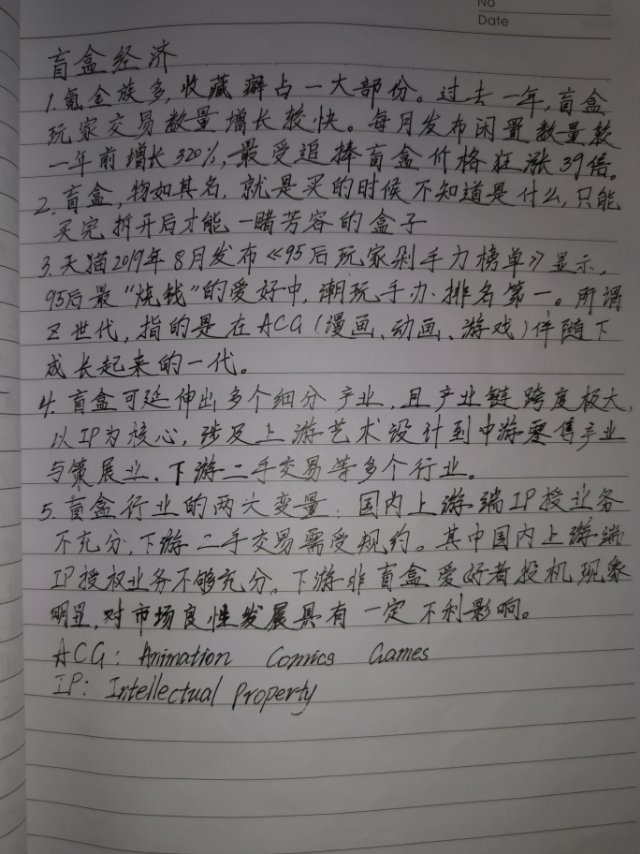 No
Date
盲盒经济
1.氪金族多,收藏癖占一大部份。过去一年,盲盒
玩家交易数量增长较快。每月发布闲置数量较
一年前增长320%,最受追捧盲盒价格狂涨39倍。
2.盲盒,物如其名,就是买的时候不知道是什么,只能
买完拆开后才能一睹芳容的盒子
3.天猫2019年8月发布《95后玩家剁手力榜单》显示,
95后最“烧钱”的爱好中,潮玩手办排名第一。所谓
Z世代,指的是在ACG(漫画、动画、游戏)伴随下
成长起来的一代。
4.盲盒可延伸出多个细分产业,且产业链跨度极大,
以IP为核心,涉及上游艺术设计到中游零售产业
与策展业、下游二手交易等多个行业。
5.盲盒行业的两大变量:国内上游端IP授业务
不充分,下游二手交易需受规约。其中国内上游端
IP授权业务不够充分,下游非盲盒爱好者投机现象
明显,对市场良性发展具有一定不利影响。
ACG: Animation Comics Games
IP: Intellectual Property